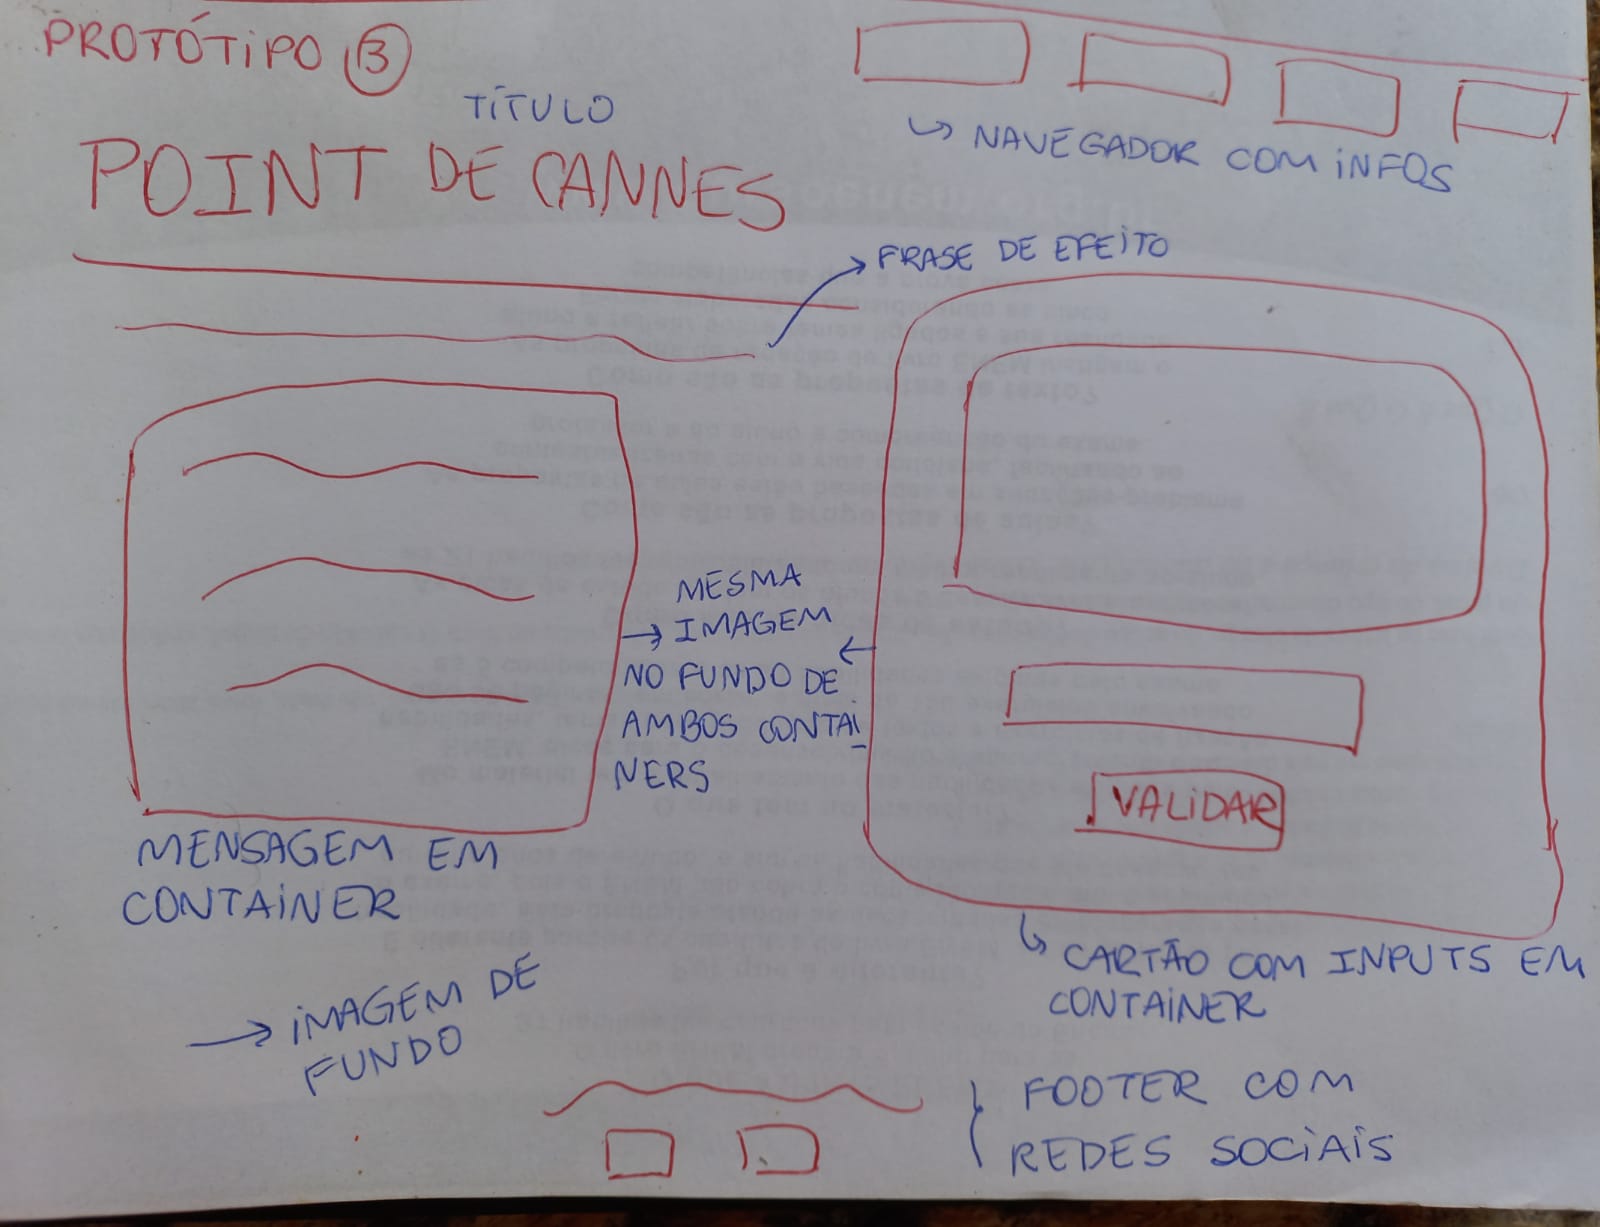 PROTÓTIPO 3
TÍTULO
POINT DE CANNES
NAVEGADOR COM INFOS
FRASE DE EFEITO
MESMA
IMAGEM
NO FUNDO DE
AMBOS CONTAI
NERS
VALIDAR
MENSAGEM EM
CONTAINER
CARTÃO COM INPUTS EM
CONTAINER
IMAGEM DE
FUNDO
FOOTER COM
REDES SOCIAIS